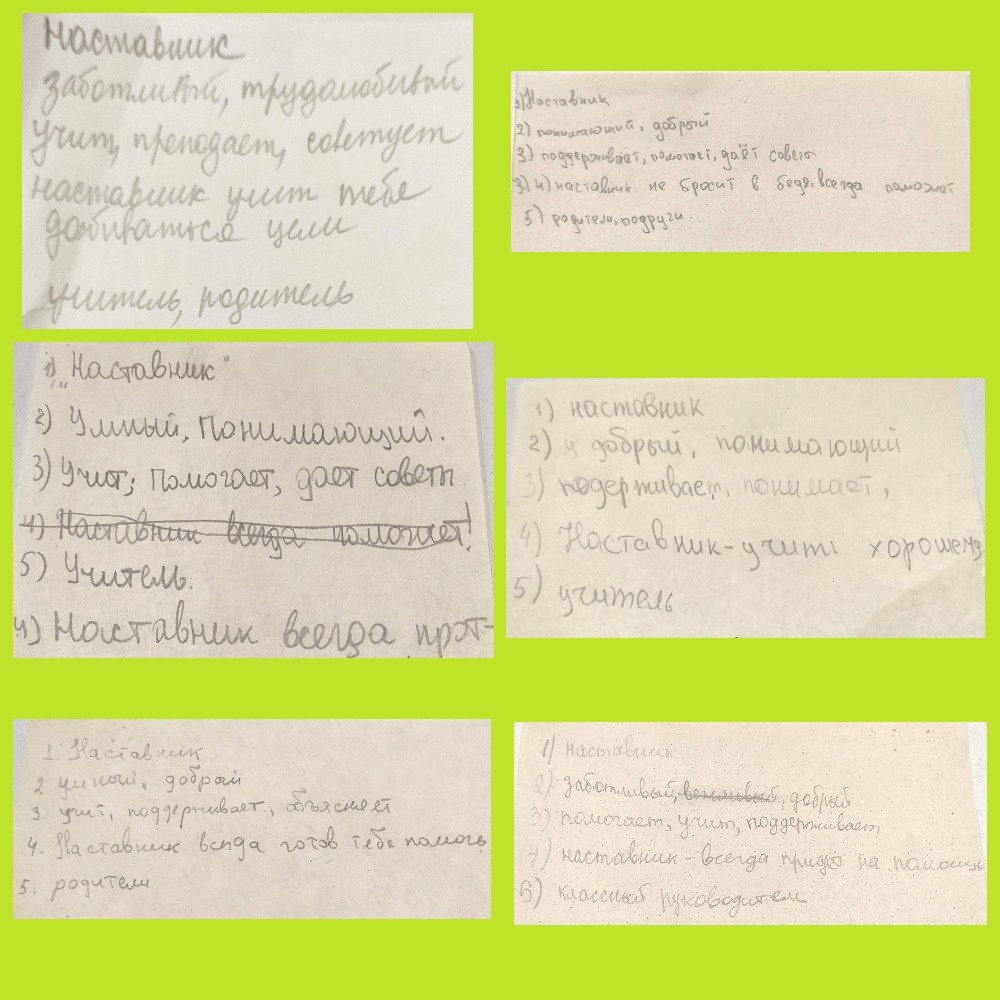 Наставник
Заботливый, трудолюбивый
Учит, преподает, советует
наставник учит тебе
добиваться цели
учитель, родитель
1) Наставник
2) понимающий, добрый
3) поддерживает, помогает, даёт советы
4) наставник не бросит в беде, всегда поможет
5) родители, подруги
1) "Наставник"
2) Умный, Понимающий.
3) Учит; помогает, дает советы
4) Наставник всегда поможет!
5) Учитель.
4) Наставник всегда
1) наставник
2) добрый, понимающий
3) подерживает, понимает,
4) Наставник-учит хорошему
5) учитель
1. Наставник
2 умный, добрый
3. учит, поддерживает, объясняет
4. Наставник всегда готов тебе помочь
5. родители
1) наставник
2) заботливый, вежливый, добрый
3) помогает, учит, поддерживает
4) наставник - всегда придёт на помощь
5) классный руководитель